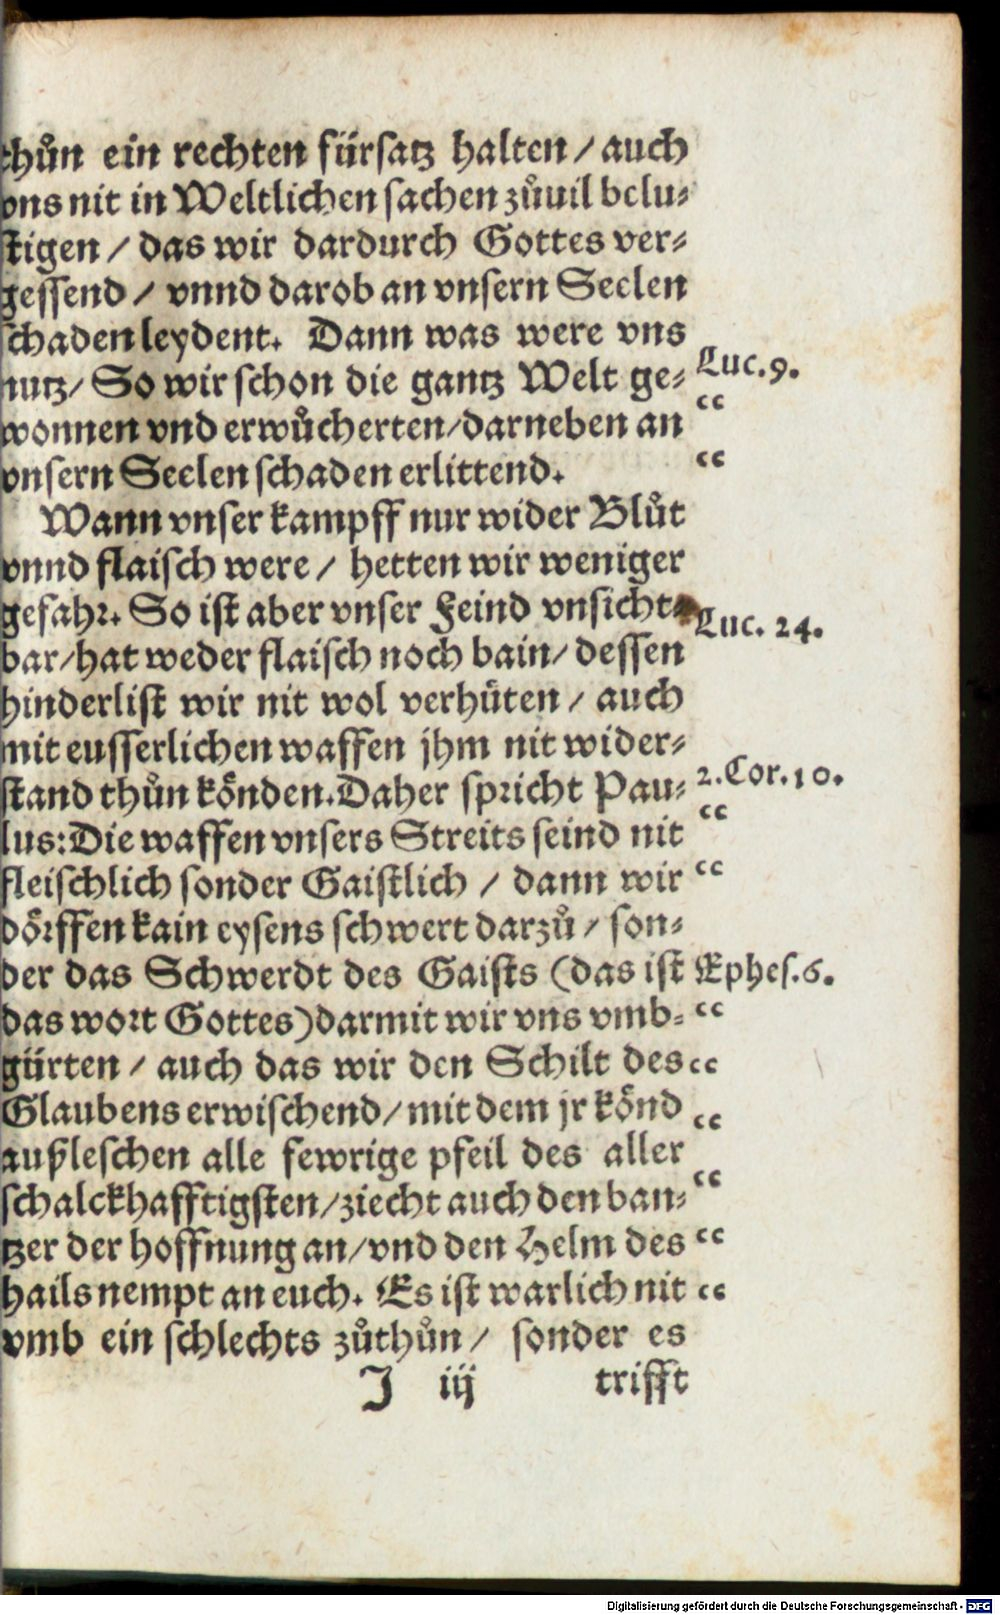 thůn ein rechten fürsatz halten / auch
vns nit in Weltlichen sachen zůuil belu⸗
stigen / das wir dardurch Gottes ver⸗
gessend / vnnd darob an vnsern Seelen
schaden leydent. Dann was were vns
nutz / So wir schon die gantz Welt ge⸗
Luc.9.
wonnen vnd erwůcherten / darneben an
“
vnsern Seelen schaden erlittend.
“
Wann vnser kampff nur wider Blůt
vnnd flaisch were / hetten wir weniger
gefahr. So ist aber vnser Feind vnsicht⸗
Luc. 24.
bar / hat weder flaisch noch bain / dessen
hinderlist wir nit wol verhüten / auch
mit eusserlichen waffen jhm nit wider⸗
stand thůn könden. Daher spricht Pau⸗
2.Cor.10.
lus: Die waffen vnsers Streits seind nit
“
fleischlich sonder Gaistlich / dann wir
“
dörffen kain eysens schwert darzů / son⸗
der das Schwerdt des Gaists (das ist
Ephes.6.
das wort Gottes) darmit wir vns vmb⸗
“
gürten / auch das wir den Schilt des
“
Glaubens erwischend / mit dem jr könd
“
außleschen alle fewrige pfeil des aller
schalckhafftigsten / ziecht auch den ban⸗
“
tzer der hoffnung an / vnd den Helm des
“
hails nempt an euch. Es ist warlich nit
“
vmb ein schlechts zůthůn / sonder es
J iij trifft
Digitalisierung gefördert durch die Deutsche Forschungsgemeinschaft - DFG